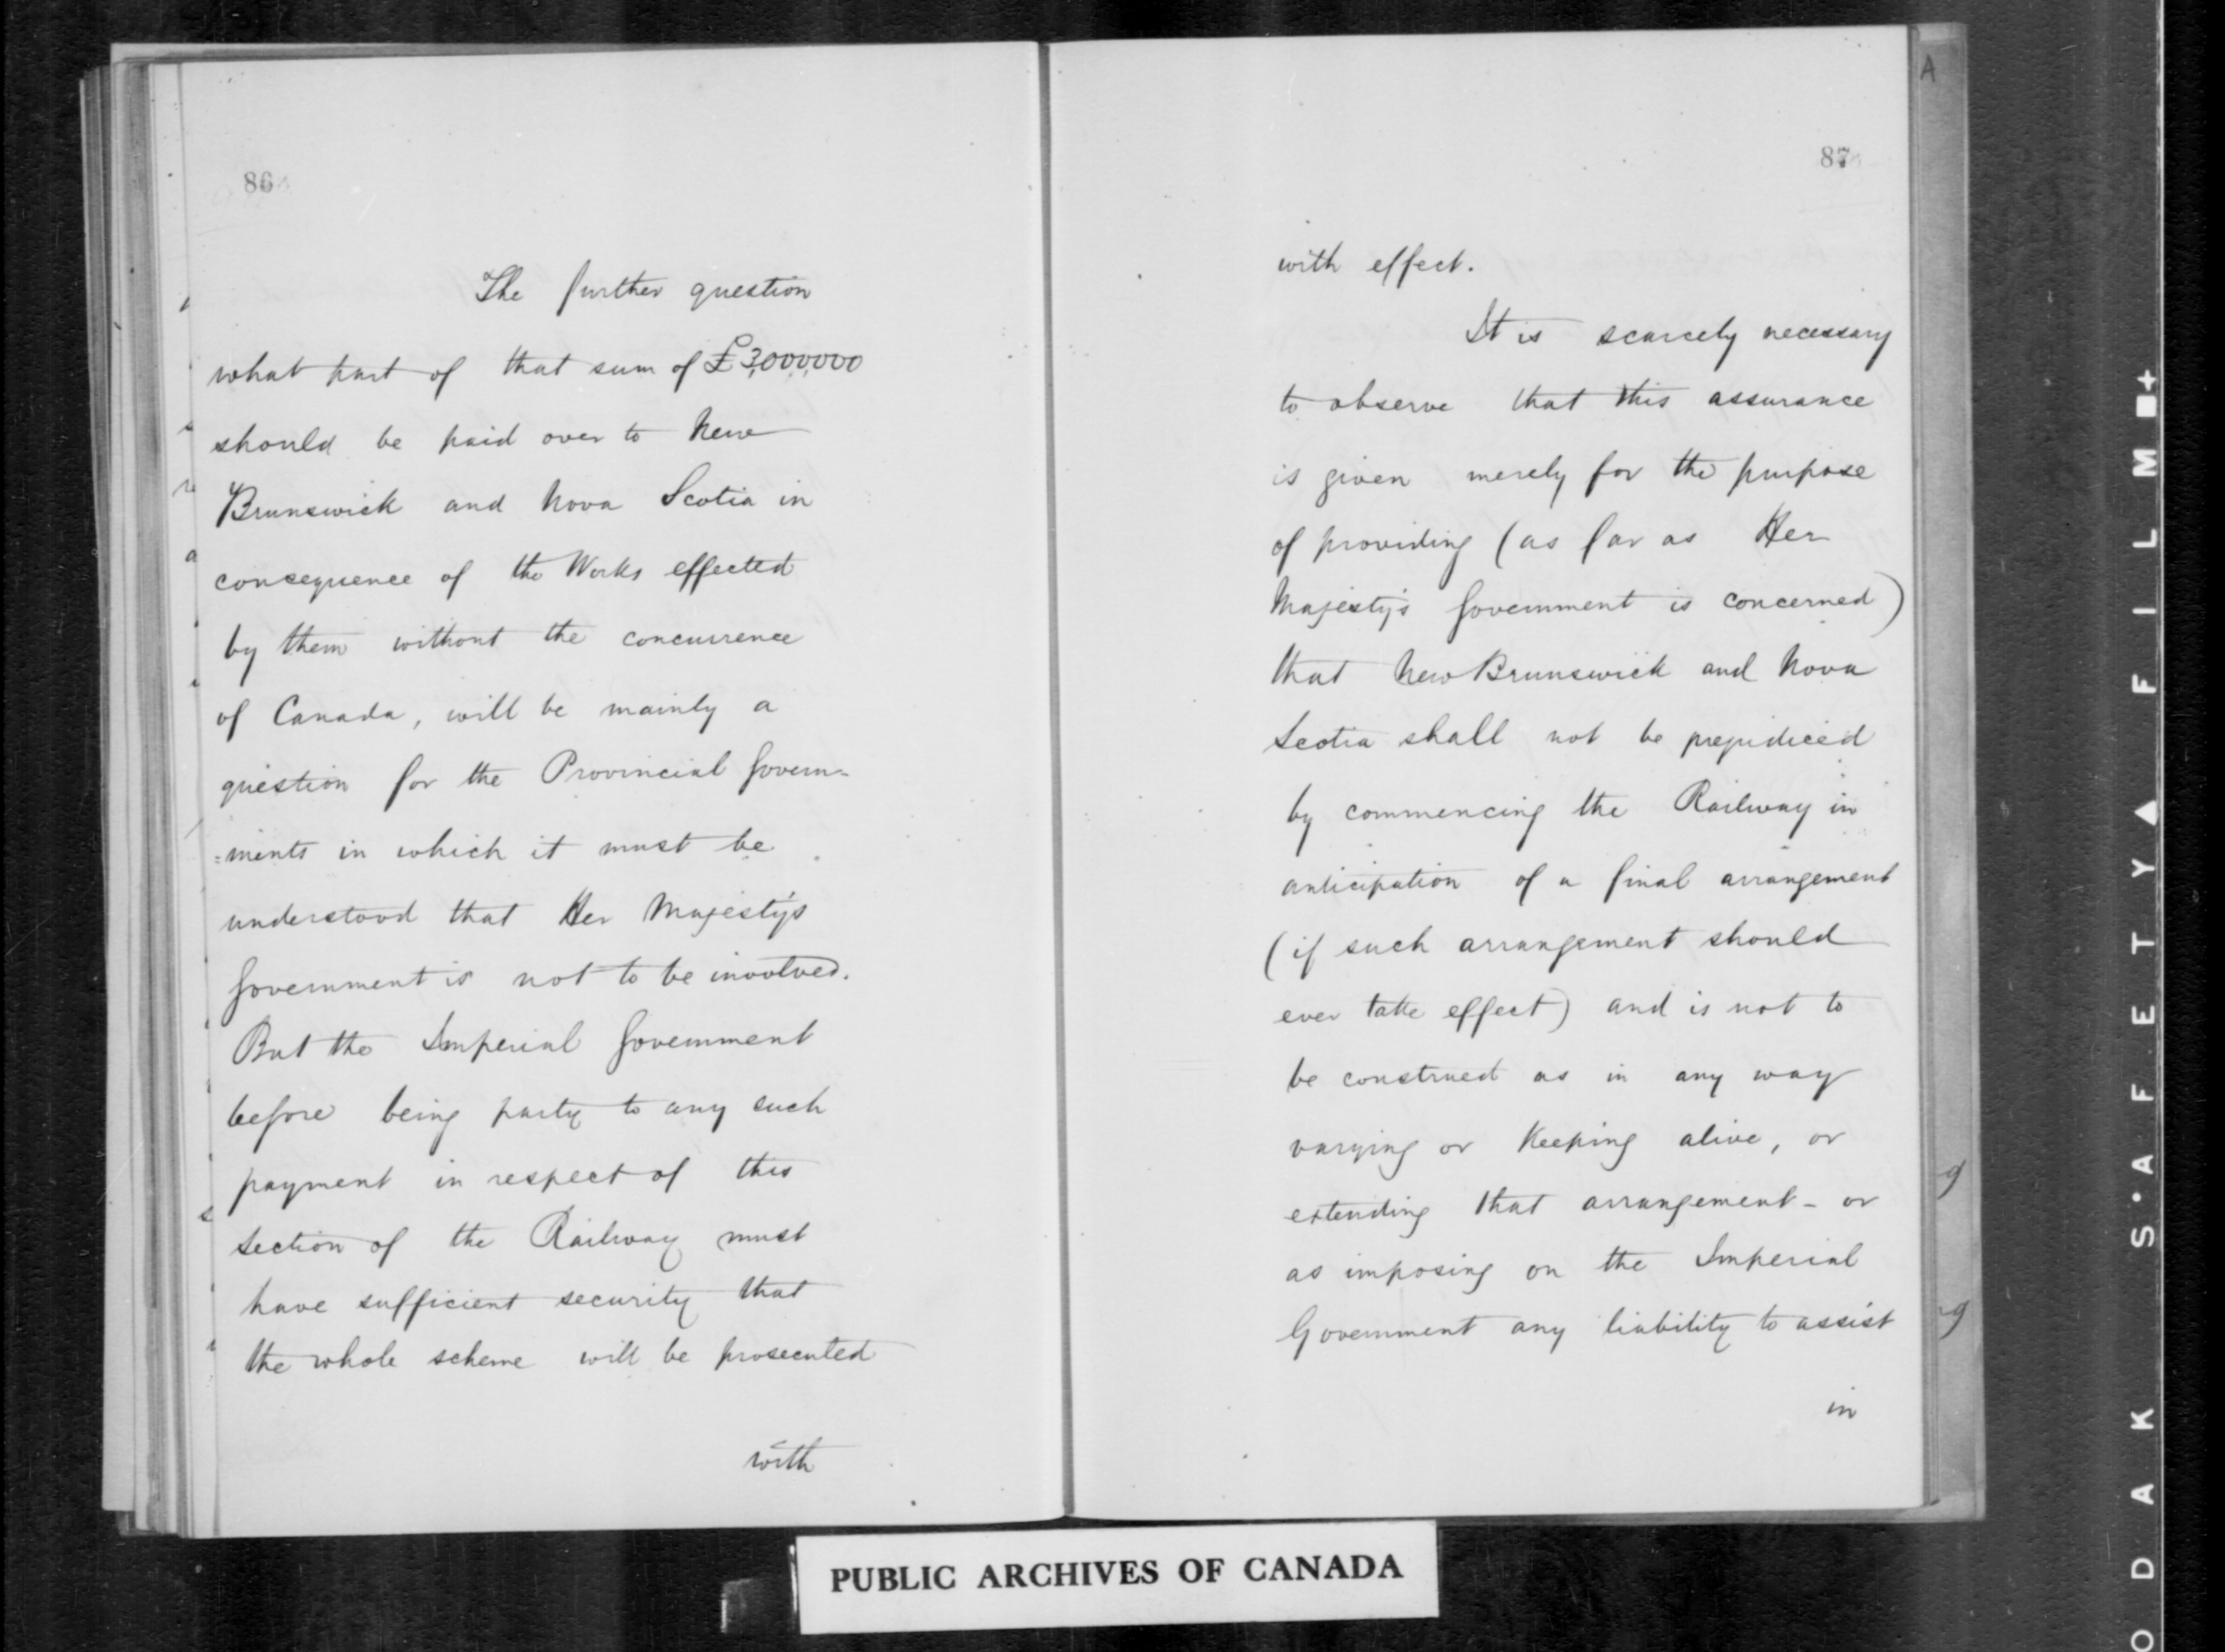 86
The further question
what part of that sum of £3,000,000
should be paid over to New
Brunswick and Nova Scotia in
consequence of the Works effected
by them without the concurrence
of Canada, will be mainly a
question for the Provincial Govern-
=ments in which it must be
understood that Her Majesty's
Government is not to be involved.
But the Imperial Government
before being party to any such
payment in respect of this
section of the Railway must
have sufficient security that
the whole scheme will be prosecuted
with
87
with effect.
It is scarcely necessary
to observe that this assurance
is given merely for the purpose
of providing (as far as Her
Majesty's Government is concerned)
that New Brunswick and Nova
Scotia shall not be prejudiced
by commencing the Railway in
anticipation of a final arrangement
(if such arrangement should
ever take effect) and is not to
be construed as in any way
varying or Keeping alive, or
extending that arrangement - or
as imposing on the Imperial
Government any liability to assist
in
A
g
g
PUBLIC ARCHIVES OF CANADA
O D A K S·A F E T Y ▲ F I L M ■ +